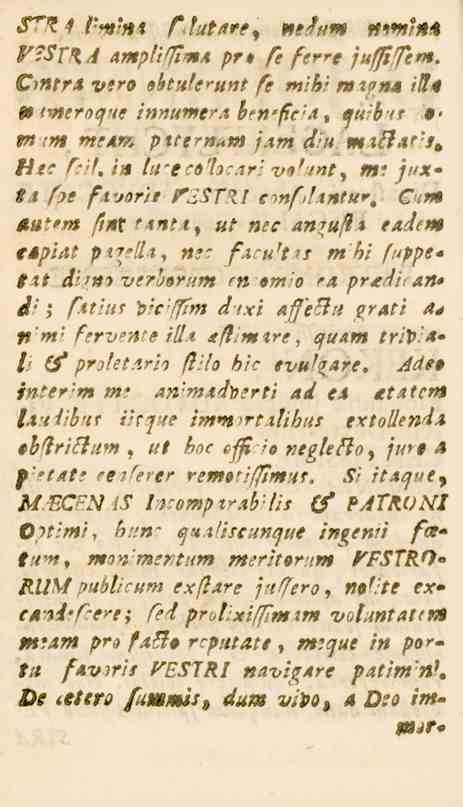 STRA limina salutare, nedum nomina
VESTRA amplissima pro se ferre jussissem.
Contra vero obtulerunt se mihi magna illa
numeroque innumera beneficia, quibus do-
mum meam paternam jam diu mactatis.
Hæc scil. in luce collocari volunt, me jux-
ta spe favoris VESTRI consolantur. Cum
autem sint tanta, ut nec angusta eadem
capiat pagella, nec facultas mihi suppe-
tat digno verborum encomio ea prædican-
di; satius vicissim duxi affectu grati a-
nimi fervente illa æstimare, quam trivia-
li & proletario stilo hic evulgare. Adeo
interim me animadverti ad ea ætatem
laudibus iisque immortalibus extollenda
obstrictum, ut hoc officio neglecto, jure a
pietate censerer remotissimus. Si itaque,
MÆCENAS Incomparabilis & PATRONI
Optimi, hunc qualiscunque ingenii fœ-
tum, monimentum meritorum VESTRO-
RUM publicum exstare jussero, nolite ex-
candescere; sed prolixissimam voluntatem
meam pro facto reputate, meque in por-
tu favoris VESTRI navigare patimini.
De cetero summis, dum vivo, a Deo im-
mor-